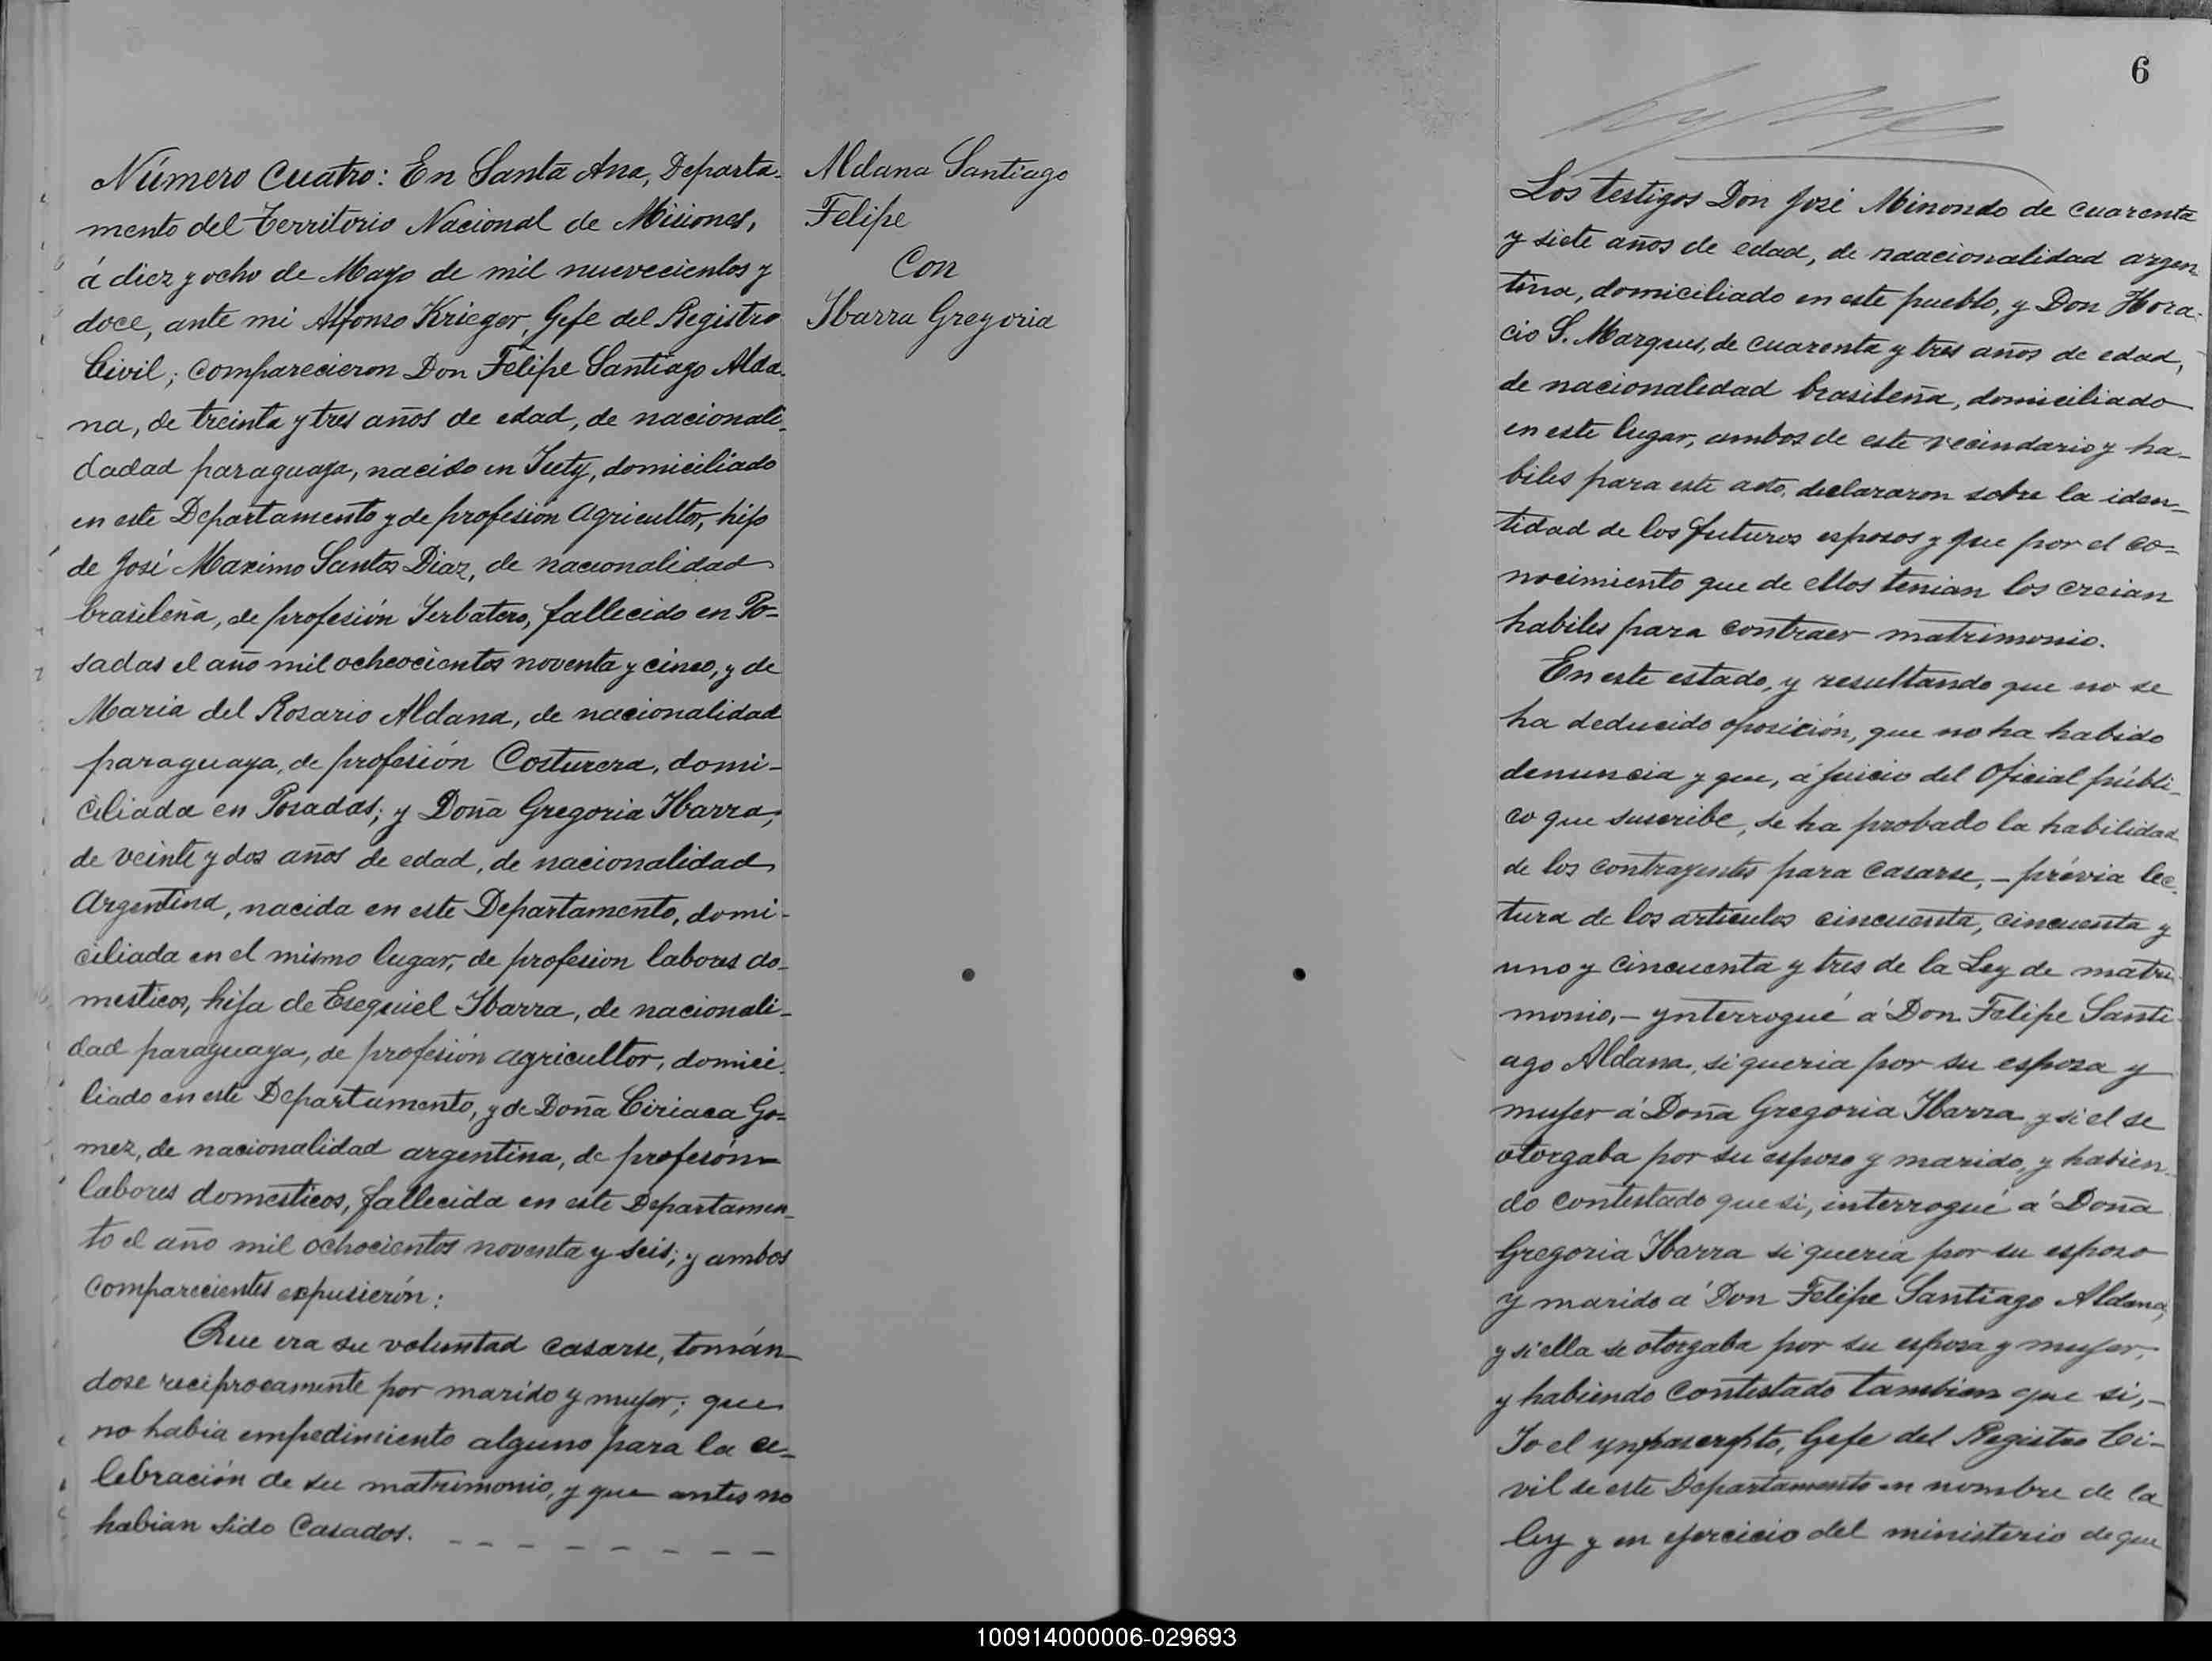 Número Cuatro: En Santa Ana, Departa-
mento del Territorio Nacional de Misiones,
á diez y ocho de Mayo de mil nuevecientos y
doce, ante mi Alfonso Krieger, Gefe del Registro
Civil; comparecieron Don Felipe Santiago Alda-
na, de treinta y tres años de edad, de nacionali-
dadad paraguaya, nacido en Iuty, domiciliado
en este Departamento y de profesión agricultor, hijo
de José Maximo Santos Diaz, de nacionalidad
brasileña, de profesión Yerbatero, fallecido en Po-
sadas el año mil ocheocientos noventa y cinco, y de
Maria del Rosario Aldana, de nacionalidad
paraguaya, de profesión Costurera, domi-
ciliada en Posadas; y Doña Gregoria Ibarra,
de veinte y dos años de edad, de nacionalidad
Argentina, nacida en este Departamento, domi-
ciliada en el mismo lugar, de profesion labores do-
mesticos, hija de Esequiel Ibarra, de nacionali-
dad paraguaya, de profesión agricultor, domici-
liado en este Departamento, y de Doña Ciriaca Go-
mez, de nacionalidad argentina, de profesón
labores domesticos, fallecida en este Departamen-
to el año mil ochocientos noventa y seis; y ambos
comparecientes expusierón:
Que era su voluntad casarse, tomán-
dose reciprocamente por marido y mujer; que
no habia empedimiento alguno para la ce-
lebración de su matrimonio, y que antes no
habian sido Casados. - - - - - - - -
Aldana Santiago
Felipe
Con
Ibarra Gregoria
6
Los testigos Don José Minondo de cuarenta
y siete años de edad, de naacionalidad argen-
tina, domiciliado en este pueblo, y Don Hora-
cio S. Marques, de cuarenta y tres años de edad,
de nacionaledad brasileña, domiciliado
en este lugar, ambos de este vecindario y ha-
biles para este acto, declararon sobre la iden-
tidad de los futuros esposos y que por el co-
nocimiento que de ellos tenian los creian
habiles para contraer matrimonio.
En este estado, y resultando que no se
ha deducido oposición, que no ha habido
denuncia y que, á juicio del Oficial públi-
co que suscribe, se ha probado la habilidad
de los contrayentes para casarse, - prévia lec-
tura de los articulos cincuenta, cincuenta y
uno y cincuenta y tres de la Ley de matri-
monio, - ynterrogué á Don Felipe Santi-
ago Aldana, si queria por su esposa y
mujer á Doña Gregoria Ibarra y si el se
otorgaba por su esposo y marido, y habien-
do contestado que si, interrogué á Doña
Gregoria Ibarra si queria por su esposo
y marido á Don Felipe Santiago Aldana,
y si ella se otorgaba por su esposa y mujer,
y habiendo contestado tambien que si, -
Yo el Gefe del Registro Ci-
vil de este Departamento en nombre de la
ley y en ejercicio del ministerio de que
100914000006-029693